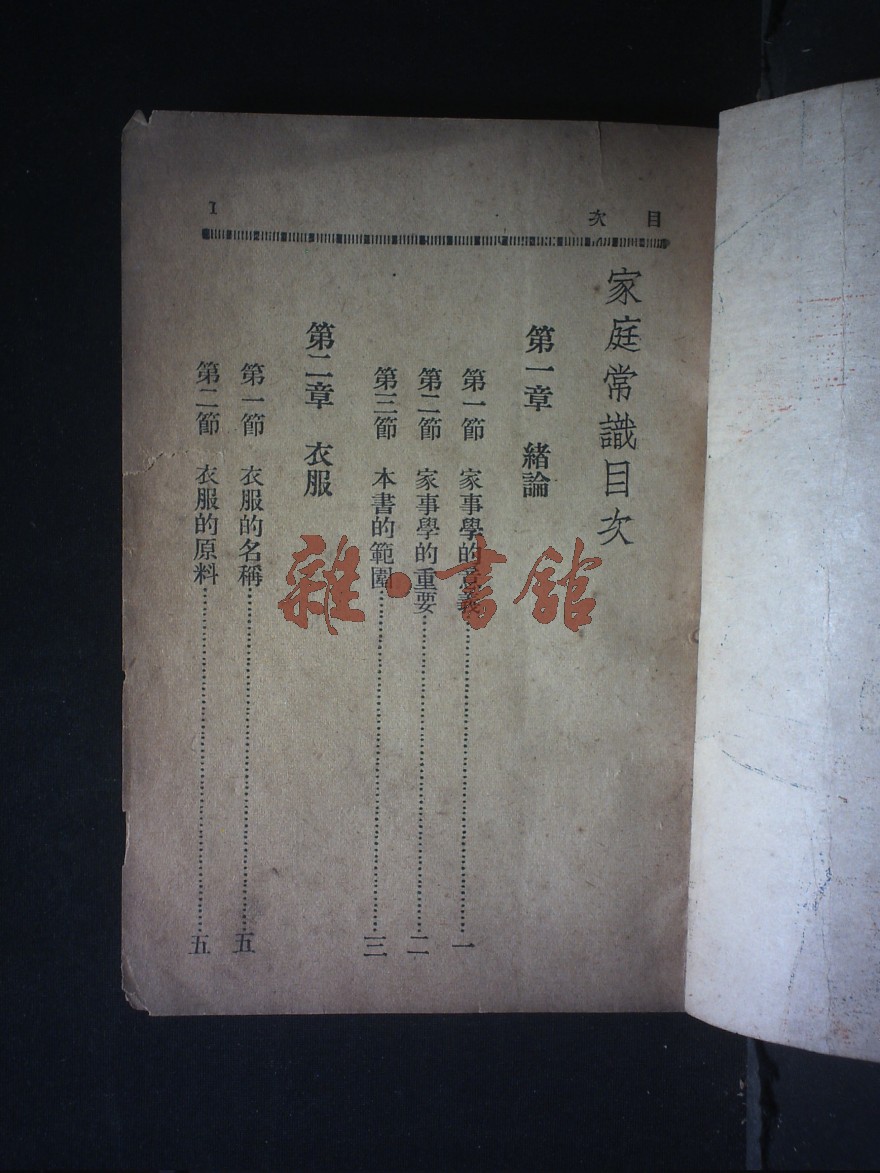 目次
1
家庭常識目次
第一章　緒論
第一節　家事學的意義……一
第二節　家事學的重要……二
第三節　本書的範圍……三
第二章　衣服
第一節　衣服的名稱……五
第二節　衣服的原料……五
雜·書館